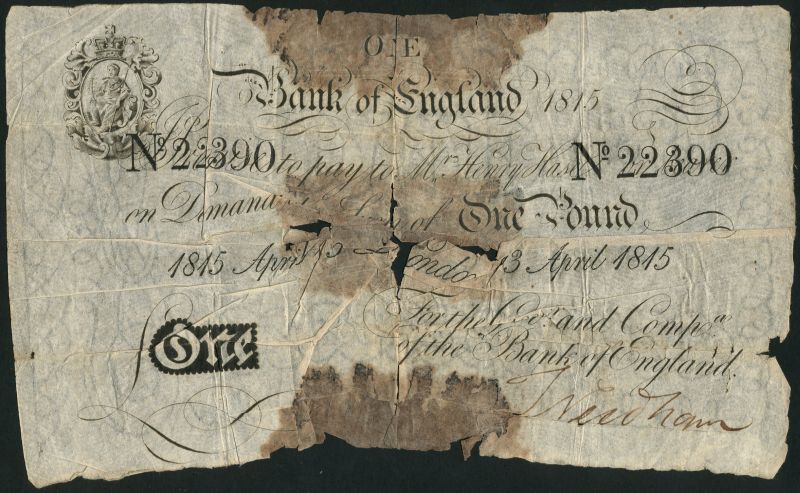 ONE
Bank of England 1815
I Promise to pay to Mr. Henry Hase
No 22390 No 22390
on Demand the Sum of One Pound
1815 April 13 London 13 April 1815
For the Govr. and Compa.
of the Bank of England.
One
J Needham